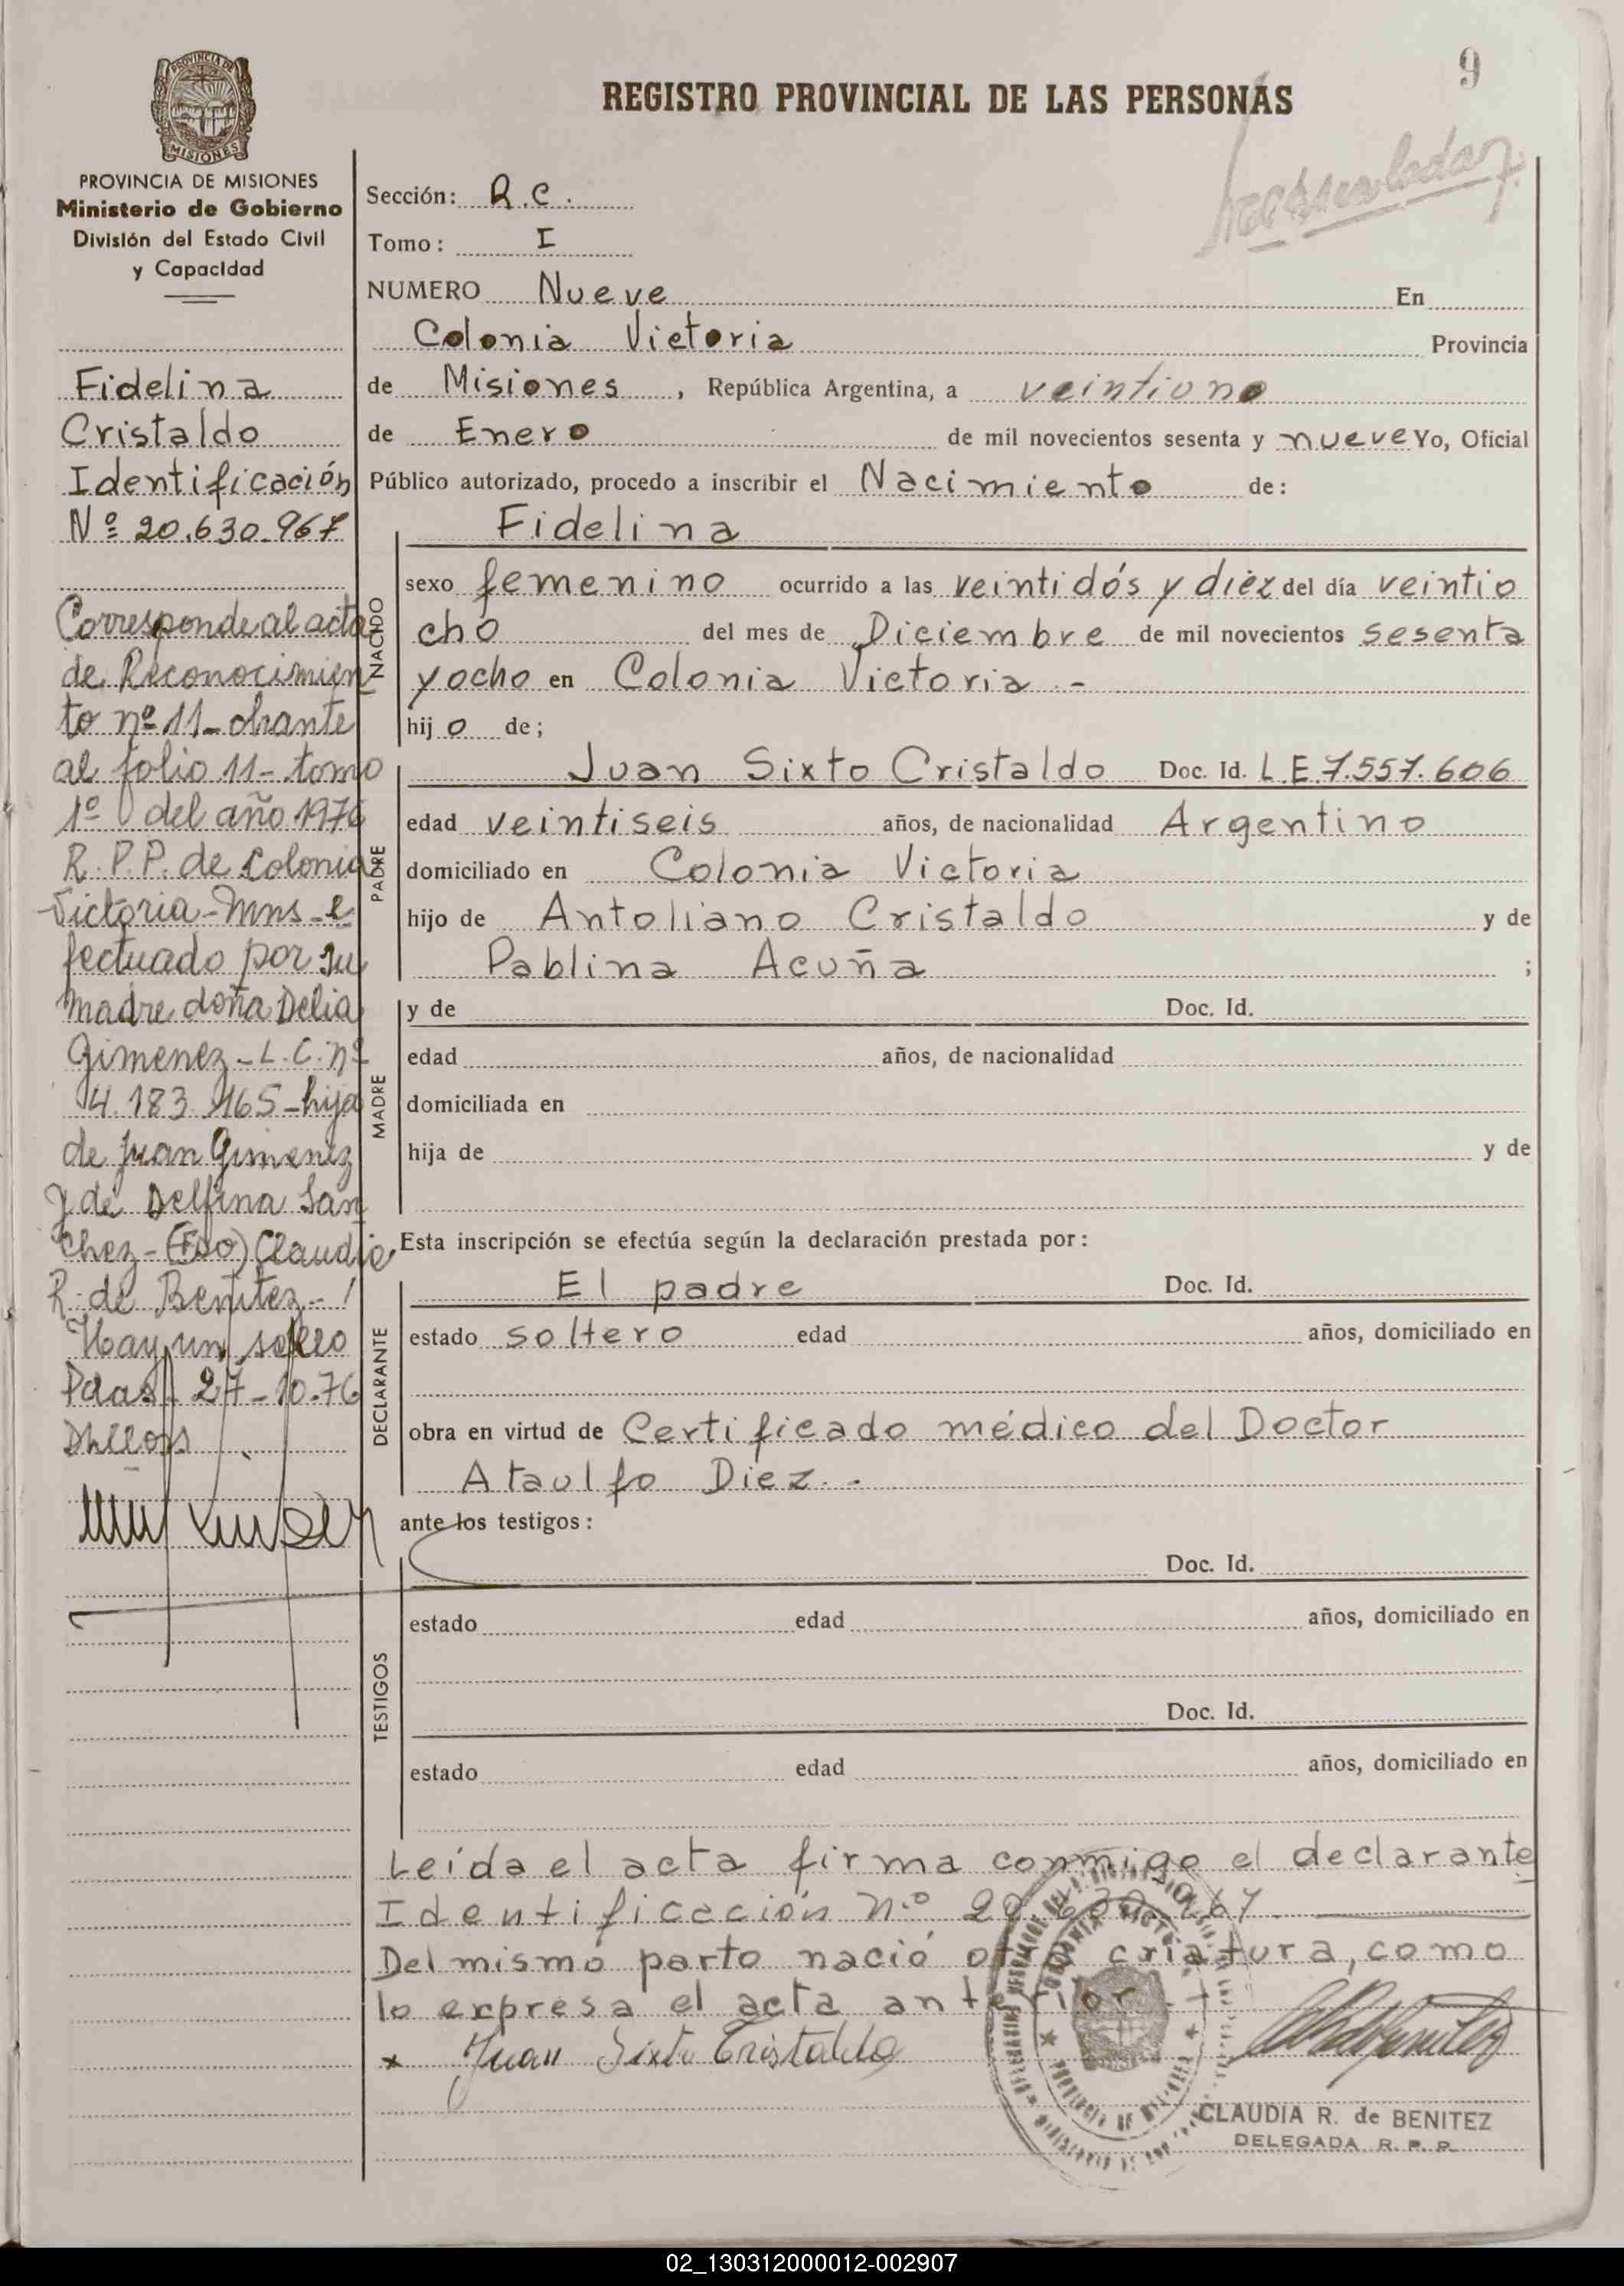 9
REGISTRO PROVINCIAL DE LAS PERSONAS
PROVINCIA DE
MISIONES
PROVINCIA DE MISIONES
Ministerio de Gobierno
División del Estado Civil
y Capacidad
Fidelina
Cristaldo
Identificación
Nº 20.630.967
Corresponde al acta
de Reconocimien
to nº 11 - obrante
al folio 11 - tomo
1º del año 1976
R. P. P. de Colonia
Victoria - Mns - e
fectuado por su
madre doña Delia
Gimenez - L. C. nº
4.183.165 - hija
de Juan Gimenez
y de Delfina San
chez - (Fdo) Claudia
R. de Benitez -
Hay un sello
Pdas 27-10-76
Sección: R.C.
Tomo: I
NUMERO Nueve En
Colonia Victoria Provincia
de Misiones, República Argentina, a veintiuno
de Enero de mil novecientos sesenta y nueve Yo, Oficial
Público autorizado, procedo a inscribir el Nacimiento de:
NACIDO
Fidelina
sexo femenino ocurrido a las veintidós y diez del día veintio
cho del mes de Diciembre de mil novecientos sesenta
y ocho en Colonia Victoria.-
hij o de;
PADRE
Juan Sixto Cristaldo Doc. Id. L.E. 7.557.606
edad veintiseis años, de nacionalidad Argentino
domiciliado en Colonia Victoria
hijo de Antoliano Cristaldo y de
Pablina Acuña ;
MADRE
y de Doc. Id.
edad años, de nacionalidad
domiciliada en
hija de y de
Esta inscripción se efectúa según la declaración prestada por:
DECLARANTE
El padre Doc. Id.
estado soltero edad años, domiciliado en
obra en virtud de Certificado médico del Doctor
Ataulfo Diez.-
ante los testigos:
TESTIGOS
Doc. Id.
estado edad años, domiciliado en
Doc. Id.
estado edad años, domiciliado en
Leída el acta firma conmigo el declarante
Identificación n.º 20.630.967.
Del mismo parto nació otra criatura, como
lo expresa el acta anterior.
x Juan Sixto Cristaldo
CLAUDIA R. de BENITEZ
DELEGADA R. P. P.
02_130312000012-002907